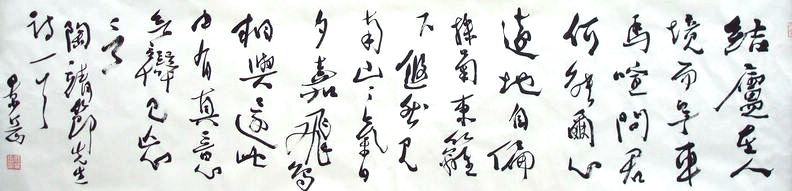 結廬在人
境而無車
馬喧問君
何能爾心
遠地自偏
採菊東籬
下悠然見
南山々氣日
夕嘉飛鳥
相與還此
中有真意
欲辯已忘
言
陶靖節先生
詩一首